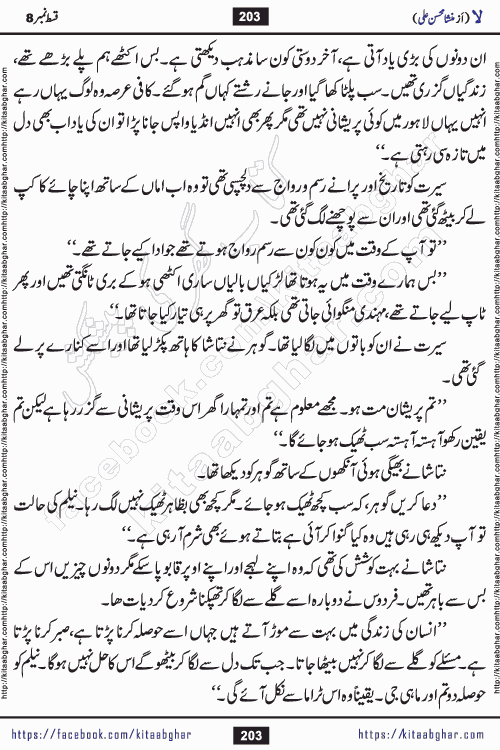 لا (از منشا محسن علی) 203 قسط نمبر 8
ان دونوں کی بڑی یاد آتی ہے، آخر دوستی کون سا مذہب دیکھتی ہے۔ بس اکٹھے ہم پلے بڑھے تھے،
زندگیاں گزری تھیں۔ سب پلٹا کھا گیا اور جانے رشتے کہاں گم ہو گئے۔ کافی عرصہ وہ لوگ یہاں رہے
انہیں یہاں لاہور میں کوئی پریشانی نہیں تھی مگر پھر بھی انہیں انڈیا واپس جانا پڑا تو ان کی یاد اب بھی دل
میں تازہ سی رہتی ہے۔‘‘
سیرت کو تاریخ اور پرانے رسم و رواج سے دلچسپی تھی تو وہ اب اماں کے ساتھ اپنا چائے کا کپ
لے کر بیٹھ گئی تھی اور ان سے پوچھنے لگ گئی تھی۔
’’تو آپ کے وقت میں کون کون سے رسم رواج ہوتے تھے جو ادا کیے جاتے تھے۔‘‘
’’بس ہمارے وقت میں یہ ہوتا تھا لڑکیاں بالیاں ساری اکٹھی ہو کے بری ٹانکتی تھیں اور پھر
ٹاپ لیے جاتے تھے، مہندی منگوائی جاتی تھی بلکہ عرق تو گھر پر ہی تیار کیا جاتا تھا۔‘‘
سیرت نے ان کو باتوں میں لگا لیا تھا۔ گوہر نے نتاشا کا ہاتھ پکڑ لیا تھا اور اسے کنارے پر لے
گئی تھی۔
’’تم پریشان مت ہو۔ مجھے معلوم ہے تم اور تمہارا گھر اس وقت پریشانی سے گزر رہا ہے لیکن تم
یقین رکھو آہستہ آہستہ سب ٹھیک ہو جائے گا۔‘‘
نتاشا نے بھیگی ہوئی آنکھوں کے ساتھ گوہر کو دیکھا تھا۔
’’دعا کریں گوہر، کہ سب کچھ ٹھیک ہو جائے۔ مگر کچھ بھی بظاہر ٹھیک نہیں لگ رہا۔ نیلم کی حالت
تو آپ دیکھ ہی رہی ہیں وہ کیا گنوا کر آئی ہے بتاتے ہوئے بھی شرم آ رہی ہے۔‘‘
نتاشا نے بہت کوشش کی تھی کہ وہ اپنے لہجے اور اپنے اوپر قابو پا سکے مگر دونوں چیزیں اس کے
بس سے باہر تھیں۔ فردوس نے دوبارہ اسے گلے سے لگا کر تھپکنا شروع کر دیات ھا۔
’’انسان کی زندگی میں بہت سے موڑ آتے ہیں جہاں اسے حوصلہ کرنا پڑتا ہے، صبر کرنا پڑتا
ہے۔ مسئلے کو گلے سے لگا کر نہیں بیٹھا جاتا۔ جب تک دل سے لگا کر بیٹھو گے اس کا حل نہیں ہوگا۔ نیلم کو
حوصلہ دو تم اور ماہی جی۔ یقیناً وہ اس ٹراما سے نکل آئے گی۔‘‘
https://facebook.com/kitaabghar 203 https://kitaabghar.com